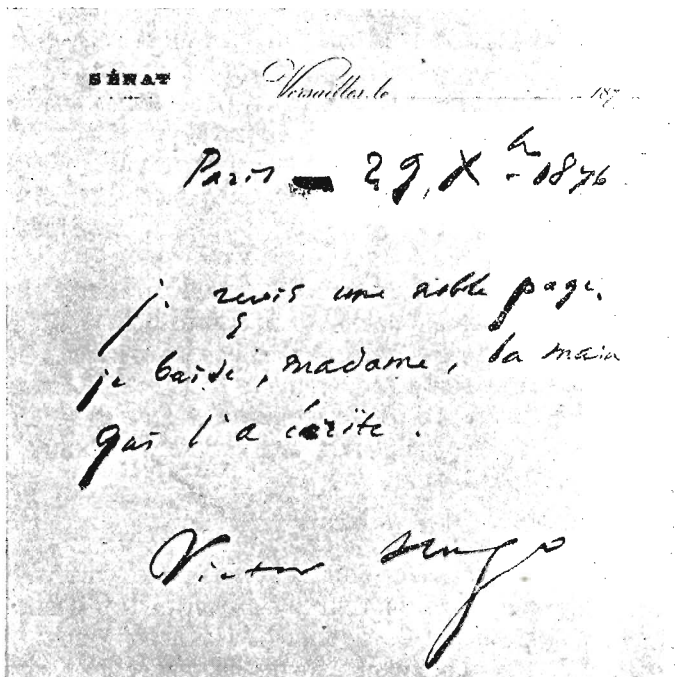 SÉNAT
Versailles, le 187
Paris — 29, Xbre 1876
je reçois une noble page.
je baise, madame, la main
qui l'a écrite.
Victor Hugo